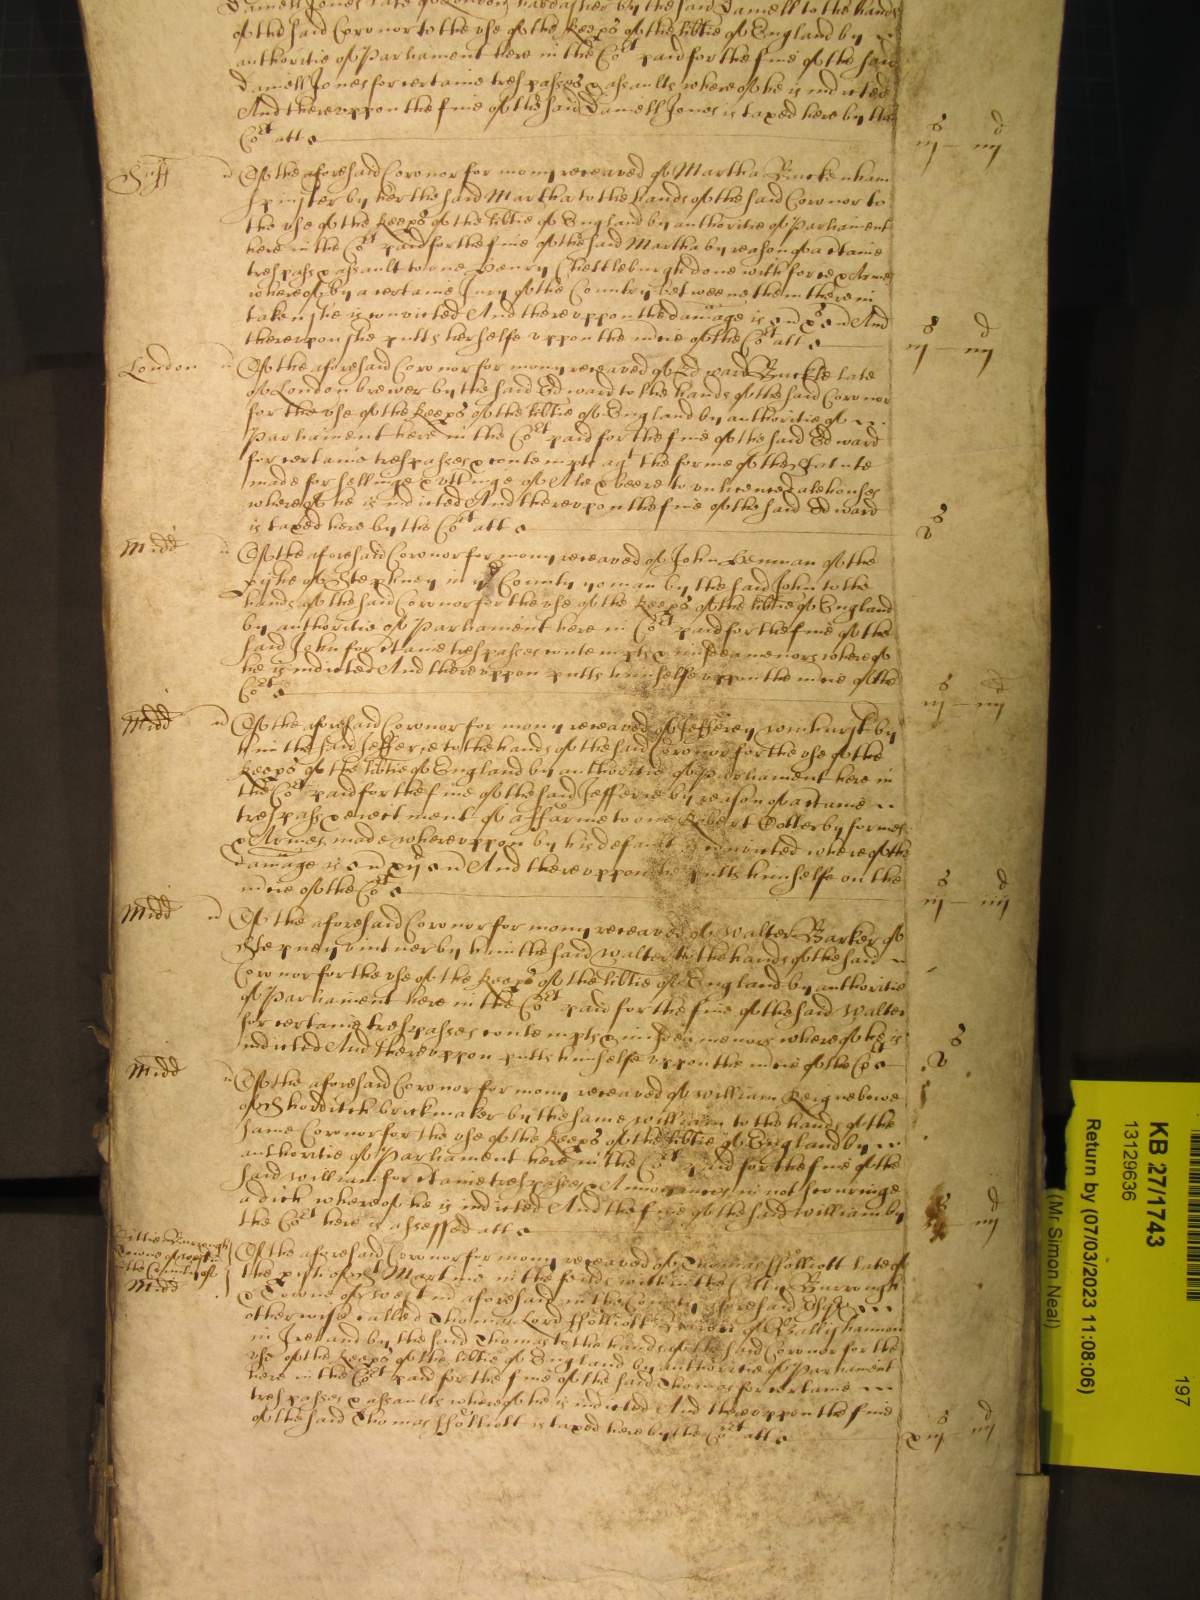 Daniell Jones late of London haberdasher by the said Daniell to the hands
of the said Coronor to the use of the keeps of the libtie of England by
authoritie of Parliament here in the Cort paid for the fine of the said
Daniell Jones for certaine trespasses & assaults whereof he is indicted
And thereuppon the fine of the said Daniell Jones is taxed here by the
Cort att
s d
iij — iiij
Suff
Of the aforesaid Coronor for mony receaved of Martha Buckenham
spinster by her the said Martha to the hands of the said Coronor to
the use of the keeps of the libtie of England by authoritie of Parliament
here in the Cort paid for the fine of the said Martha by reason of a ctaine
trespass & assault to one Henry Chettleburgh done with force & Armes
whereof by a certaine Jury of the Country betweene them therein
taken she is convicted And thereuppon the damage is And
thereupon she putts herselfe uppon the mcie of the Cort att
s d
iij — iiij
London
Of the aforesaid Coronor for mony receaved of Edward Buckle late
of London brewer by the said Edward to the hands of the said Coronor
for the use of the keeps of the libtie of England by authoritie of
Parliament here in the Cort paid for the fine of the said Edward
for certaine trespasses & contempts agt the forme of the Statute
made for sellinge & uttinge of Ale & beere to unlicenced alehouses
whereof he is indicted And thereuppon the fine of the said Edward
is taxed here by the Cort att
s
v
Midd
Of the aforesaid Coronor for mony receaved of John Henman of the
pish of Stephney in ye County yoman by the said John to the
hands of the said Coronor for the use of the keeps of the libtie of England
by authoritie of Parliament here in Cort paid for the fine of the
said John for ctaine trespasses contempts & misdeamenors whereof
he is indicted And thereuppon putts himselfe uppon the mcie of the
Cort
s d
iij — iiij
Midd
Of the aforesaid Coronor for mony receaved of Jefferey by
him the said Jefferie to the hands of the said Coronor for the use of the
keeps of the libtie of England by authoritie of Parliament here in
the Cort paid for the fine of the said Jefferie by reason of a ctaine
trespass & eiectment of a ffarme to one Robert by force
& Armes made whereuppon by his default is convicted whereof the
damage is And thereuppon he putts himselfe on the
mcie of the Cort
s d
iij — iiij
Midd
Of the aforesaid Coronor for mony receaved of Walter Barker of
Stepney vintner by him the said Walter to the hands of the said
Coronor for the use of the keeps of the libtie of England by authoritie
of Parliament here in the Cort paid for the fine of the said Walter
for certaine trespasses contempts & misdeamenors whereof he is
indicted And thereuppon putts himselfe uppon the mcie of the Cort
s
v
Midd
Of the aforesaid Coronor for mony receaved of William
of Shorditch brickmaker by the same William to the hands of the
same Coronor for the use of the keeps of the libtie of England by
authoritie of Parliament here in the Cort paid for the fine of the
said William for ctaine trespasses & Annoyances in not scouringe
a dich whereof he is indicted And the fine of the said William by
the Cort here is assessed att
d
iiij
Cittie Burrough
Towne of
in the County of
Midd
Of the aforesaid Coronor for mony receaved of Thomas ffolliott late of
the pish of St Martins in the feilds within the Citty Burrough
& Towne of Westm aforesaid in the County aforesaid Esqr
otherwise called Thomas Lord ffolliott of Ballishannon
in Ireland by the said Thomas to the hands of the said Coronor for the
use of the keeps of the libtie of England by authoritie of Parliament
here in the Cort paid for the fine of the said Thomas for certaine
trespasses & assaults whereof he is indicted And thereuppon the fine
of the said Thomas ffolliott is taxed here by the Cort att
s d
xiij iiij
KB 27/1743
13129636
Return by (07/03/2023 11:08:06)
(Mr Simon Neal)
197